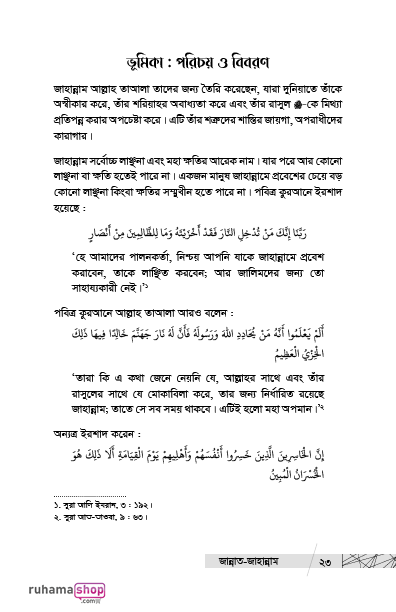 ভূমিকা : পরিচয় ও বিবরণ
জাহান্নাম আল্লাহ তাআলা তাদের জন্য তৈরি করেছেন, যারা দুনিয়াতে তাঁকে
অস্বীকার করে, তাঁর শরিয়াহর অবাধ্যতা করে এবং তাঁর রাসুল ﷺ-কে মিথ্যা
প্রতিপন্ন করার অপচেষ্টা করে। এটি তাঁর শত্রুদের শাস্তির জায়গা, অপরাধীদের
কারাগার।
জাহান্নাম সর্বোচ্চ লাঞ্ছনা এবং মহা ক্ষতির আরেক নাম। যার পরে আর কোনো
লাঞ্ছনা বা ক্ষতি হতেই পারে না। একজন মানুষ জাহান্নামে প্রবেশের চেয়ে বড়
কোনো লাঞ্ছনা কিংবা ক্ষতির সম্মুখীন হতে পারে না। পবিত্র কুরআনে ইরশাদ
হয়েছে :
رَبَّنَا إِنَّكَ مَنْ تُدْخِلِ النَّارَ فَقَدْ أَخْزَيْتَهُ وَمَا لِلظَّالِمِينَ مِنْ أَنْصَارٍ
‘হে আমাদের পালনকর্তা, নিশ্চয় আপনি যাকে জাহান্নামে প্রবেশ
করাবেন, তাকে লাঞ্ছিত করবেন; আর জালিমদের জন্য তো
সাহায্যকারী নেই।’১
পবিত্র কুরআনে আল্লাহ তাআলা আরও বলেন :
أَلَمْ يَعْلَمُوا أَنَّهُ مَنْ يُحَادِدِ اللَّهَ وَرَسُولَهُ فَأَنَّ لَهُ نَارَ جَهَنَّمَ خَالِدًا فِيهَا ذَلِكَ
الْخِزْيُ الْعَظِيمُ
‘তারা কি এ কথা জেনে নেয়নি যে, আল্লাহর সাথে এবং তাঁর
রাসুলের সাথে যে মোকাবিলা করে, তার জন্য নির্ধারিত রয়েছে
জাহান্নাম; তাতে সে সব সময় থাকবে। এটিই হলো মহা অপমান।’২
অন্যত্র ইরশাদ করেন :
إِنَّ الْخَاسِرِينَ الَّذِينَ خَسِرُوا أَنْفُسَهُمْ وَأَهْلِيهِمْ يَوْمَ الْقِيَامَةِ أَلَا ذَلِكَ هُوَ
الْخُسْرَانُ الْمُبِينُ
১. সুরা আলি ইমরান, ৩ : ১৯২।
২. সুরা আত-তাওবা, ৯ : ৬৩।
জান্নাত-জাহান্নাম ২৩
ruhamashop
.com